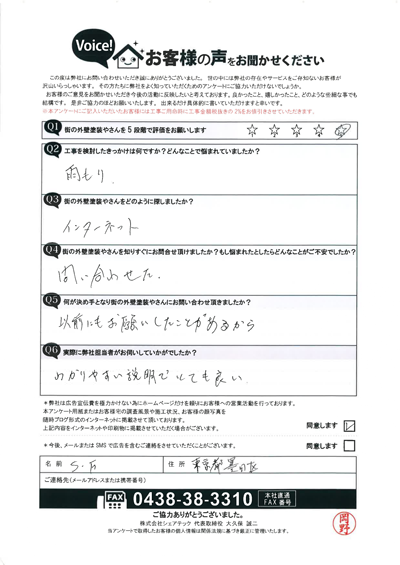 Voice!
お客様の声をお聞かせください
この度は弊社にお問い合わせいただき誠にありがとうございました。世の中には弊社の存在やサービスをご存知ないお客様が
沢山いらっしゃいます。その方たちに弊社をよく知っていただくためのアンケートにご協力いただけないでしょうか。
お客様のご意見をお聞かせいただき今後の活動に反映したいと考えております。良かったこと、嬉しかったこと、どのような些細な事でも
結構です。是非ご協力のほどお願いいたします。出来るだけ具体的に書いていただけますと幸いです。
※本アンケートにご記入いただいたお客様には工事ご用命時に工事金額税抜きの2%をお値引きさせていただきます。
Q1 街の外壁塗装やさんを5段階で評価をお願いします ☆ ☆ ☆ ☆ ☆
Q2 工事を検討したきっかけは何ですか?どんなことで悩まれていましたか?
雨もり.
Q3 街の外壁塗装やさんをどのように探しましたか?
インターネット
Q4 街の外壁塗装やさんを知りすぐにお問合せ頂けましたか?もし悩まれたとしたらどんなことがご不安でしたか?
問い合わせた.
Q5 何が決め手となり街の外壁塗装やさんにお問い合わせ頂きましたか?
以前にもお願いしたことがあるから
Q6 実際に弊社担当者がお伺いしていかがでしたか?
わかりやすい説明でとても良い.
*弊社は広告宣伝費を極力かけない為にホームページだけを頼りにお客様への営業活動を行っております。
本アンケート用紙またはお客様宅の調査風景や施工状況、お客様の顔写真を
随時ブログ形式のインターネットに掲載させて頂いております。
上記内容をインターネットや印刷物に掲載させていただく場合がございます。 同意します
*今後、メールまたはSMSで広告を含むご連絡をさせていただくことがございます。 同意します
名前 S.F 住所 東京都墨田区
ご連絡先(メールアドレスまたは携帯番号)
FAX 0438-38-3310 本社直通
FAX番号
ご協力ありがとうございました。
株式会社シェアテック 代表取締役 大久保 誠二
当アンケートで取得したお客様の個人情報は関係法規に基づき厳正に管理いたします。
岡野